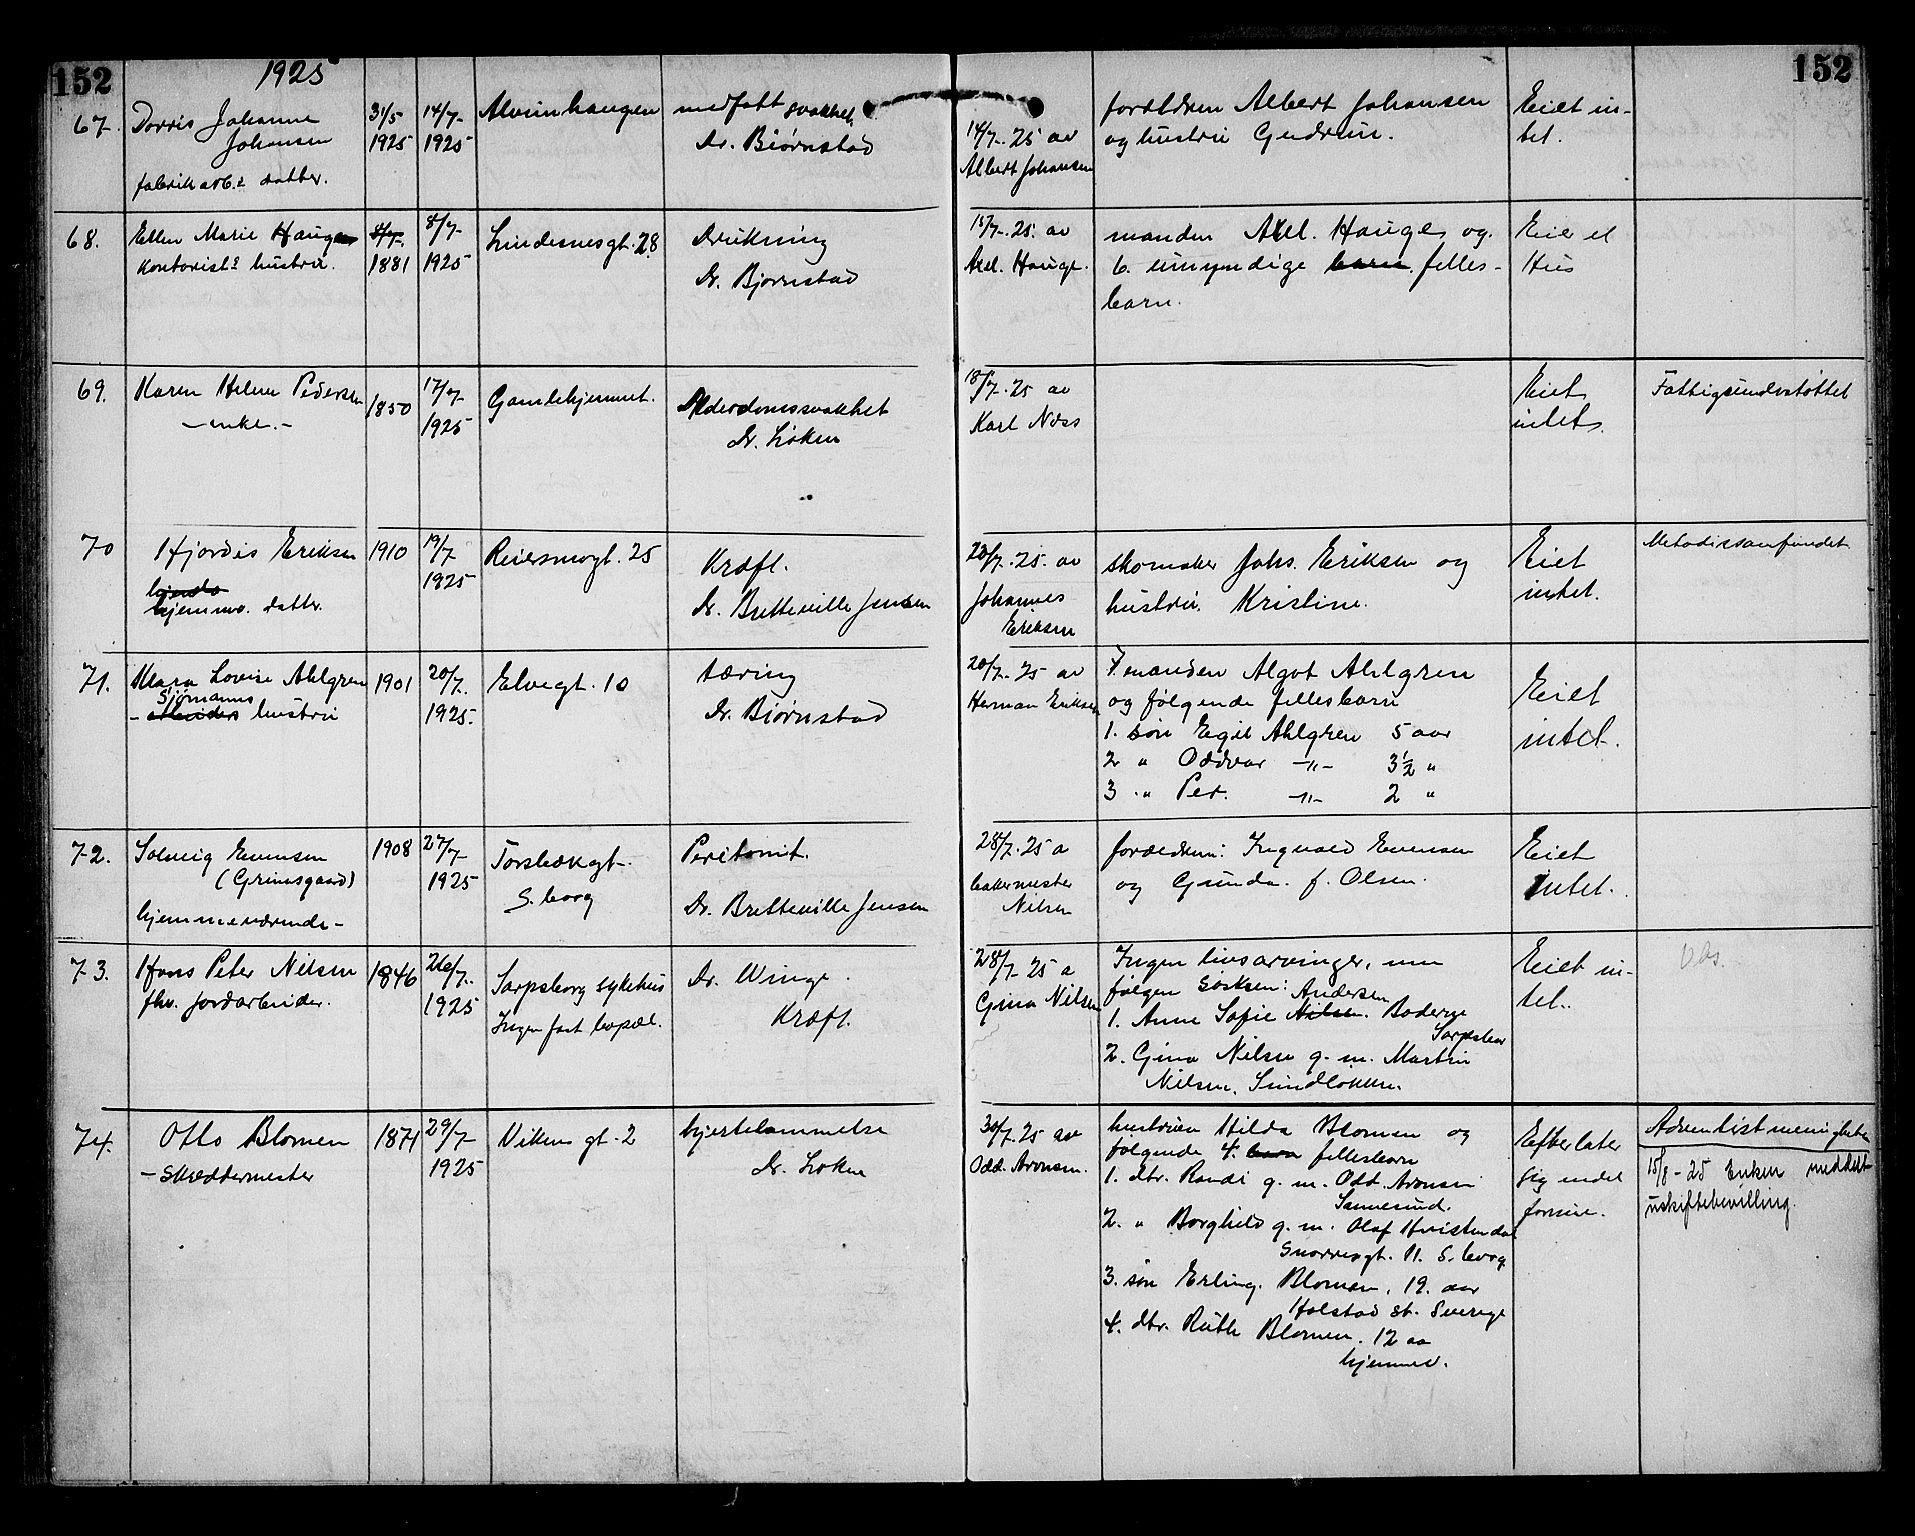 152
1925
152
67.
Dorris Johanne
Johansen
fabrikarb.s datter.
31/5
1925
14/7-
1925
Alvimhaugen
medfødt svakhet
Dr. Bjørnstad
14/7-25 av
Albert Johansen
forældren Albert Johansen
og hustru Gudrun.
Eiet in-
tet.
68.
Ellen Marie Haugen
Kontorists hustru.
8/7-
1881
8/7-
1925
Lindesnesgt. 28
Drukning
Dr. Bjørnstad
15/7-25. av
Axel. Hauge.
manden Axel. Hauge og.
6. umyndige barn. felles-
barn.
Eier et
Hus
69.
Karen Helene Pedersen
- enke. -
1850
17/7-
1925
Gamlehjemmet.
Alderdomssvakhet
Dr. Løken
18/7-25 av
Karl Næss
Eiet
intet.
Fattigsunderstøttet
70
Hjørdis Eriksen
hjemmev. datter.
1910
19/7-
1925
Reiersmogt. 25
Kræft.
Dr. Bretteville Jensen
20/7-25. av
Johannes
Eriksen
skomaker Johs. Eriksen og
hustru. Kristine.
Eiet
intet.
Metodissamfundet
71.
Klara Lovise Ahlgren
Sjømanns
- arbeiders hustru
1901
20/7.
1925.
Elvegt. 10
tæring
Dr. Bjørnstad
20/7-25 av
Herman Eriksen
manden Algot Ahlgren
og følgende fellesbarn
1. søn Egil Ahlgren 5 aar
2 " Oddvar -"- 3½ "
3 " Per. -"- 2 "
Eiet
intet.
72.
Solveig Evensen
(Grimsgaard)
hjemmeværende-
1908
27/7-
1925
Torsbækgt.
S.borg
Peritonit.
Dr. Bretteville Jensen
28/7-25 a
bakermester
Nilsen
forældrene: Ingvald Evensen
og Gunda. f. Olsen.
Eiet
intet.
73.
Hans Peter Nilsen
fhv. jordarbeider.
1846
26/7.
1925
Sarpsborg sykehus
Ingen fast bopæl.
Dr. Winge.
Kræft.
28/7-25 a
Gina Nilsen
Ingen livsarvinger, men
følgen søsken:
Andersen
1. Anne Sofie Nilsen. Boderge
Sarpsbor
2. Gina Nilsen g. m. Martin
Nilsen. Sundløkken.
Eiet in-
tet.
Obs.
74.
Otto Blomen
- Skreddermester
1871
29/7-
1925
Vikens gt. 2
hjertelammelse
Dr. Løken
30/7-25 av
Odd. Aronsen.
hustruen Hilda Blomen og
følgende 4. barn fellesbarn
1. dtr. Randi g. m. Odd. Aronsen
Sannesund.
2. " Borghild g. m. Olaf Hvistendal
Snorresgt. 11. S.borg
3. søn Erling. Blomen. 19. aar
Halstad st. Sverige
4. dtr. Ruth Blomen. 12 aa
hjemmev.
Efterlater
sig endel
formue.
Adventistmenigheten
15/8-25 Enken meddelt
uskiftebevilling.